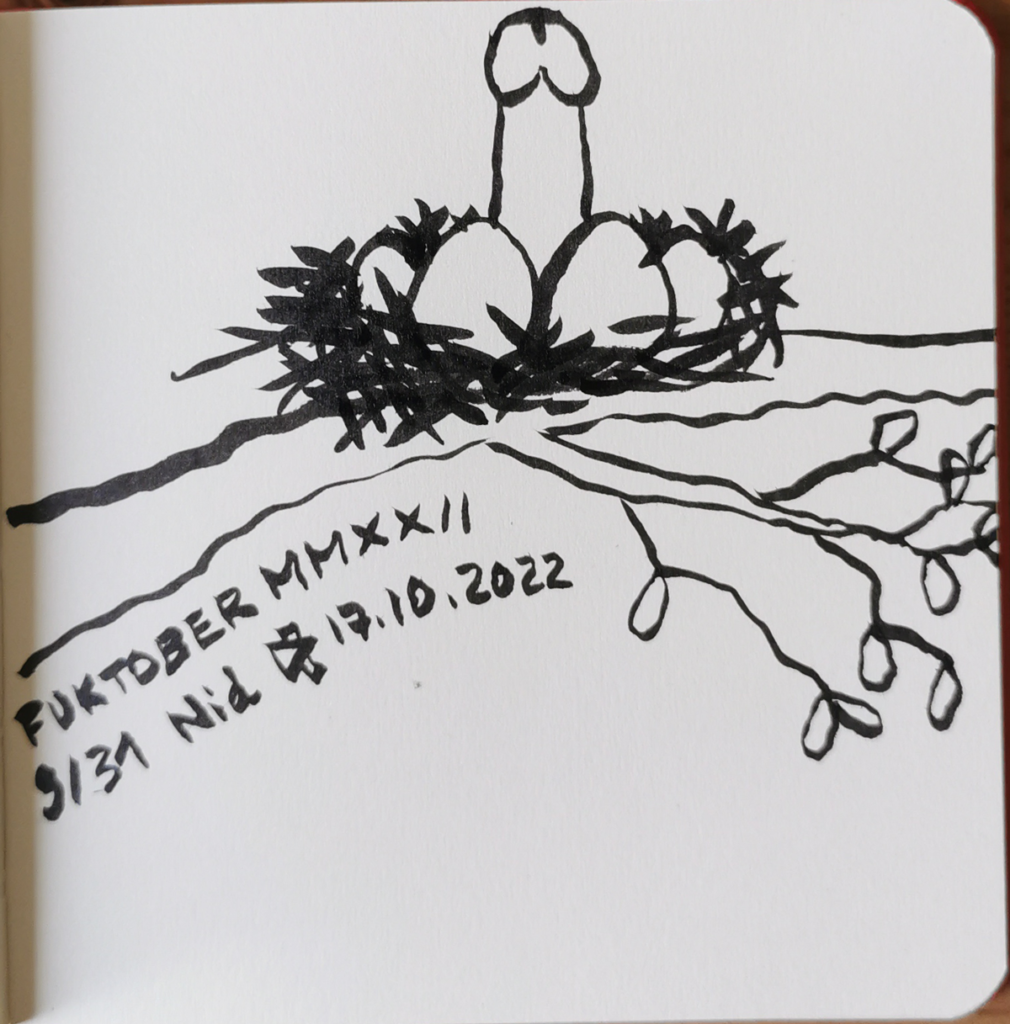 FUKTOBER MMXXII
9/31 Nid 17.10.2022